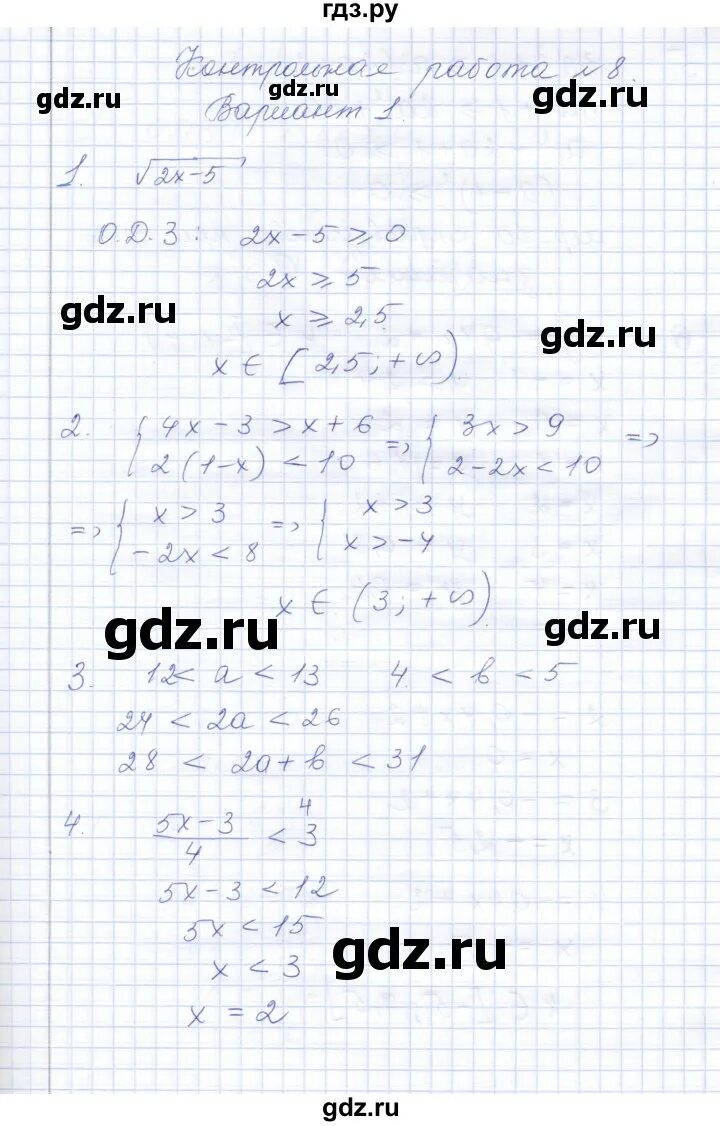 гдз.ру
Контрольная работа №8.
gdz.ru
gdz.ru
Вариант 1.
1. √2x-5
О.Д.З: 2x-5 ⩾ 0
2x ⩾ 5
gdz.ru
x ⩾ 2,5.
gdz.ru
x ∈ [2,5; +∞).
2. { 4x-3 > x+6
2(1-x) < 10 => { 3x > 9
2-2x < 10 =>
=> { x > 3
-2x < 8 => { x > 3
x > -4
x ∈ (3; +∞).
gdz.ru
gdz.ru
3. 12 < a < 13 4 < b < 5
24 < 2a < 26
28 < 2a+b < 31
4. (5x-3)/4 < 3 4
5x-3 < 12
5x < 15
gdz.ru
x < 3
x = 2
gdz.ru